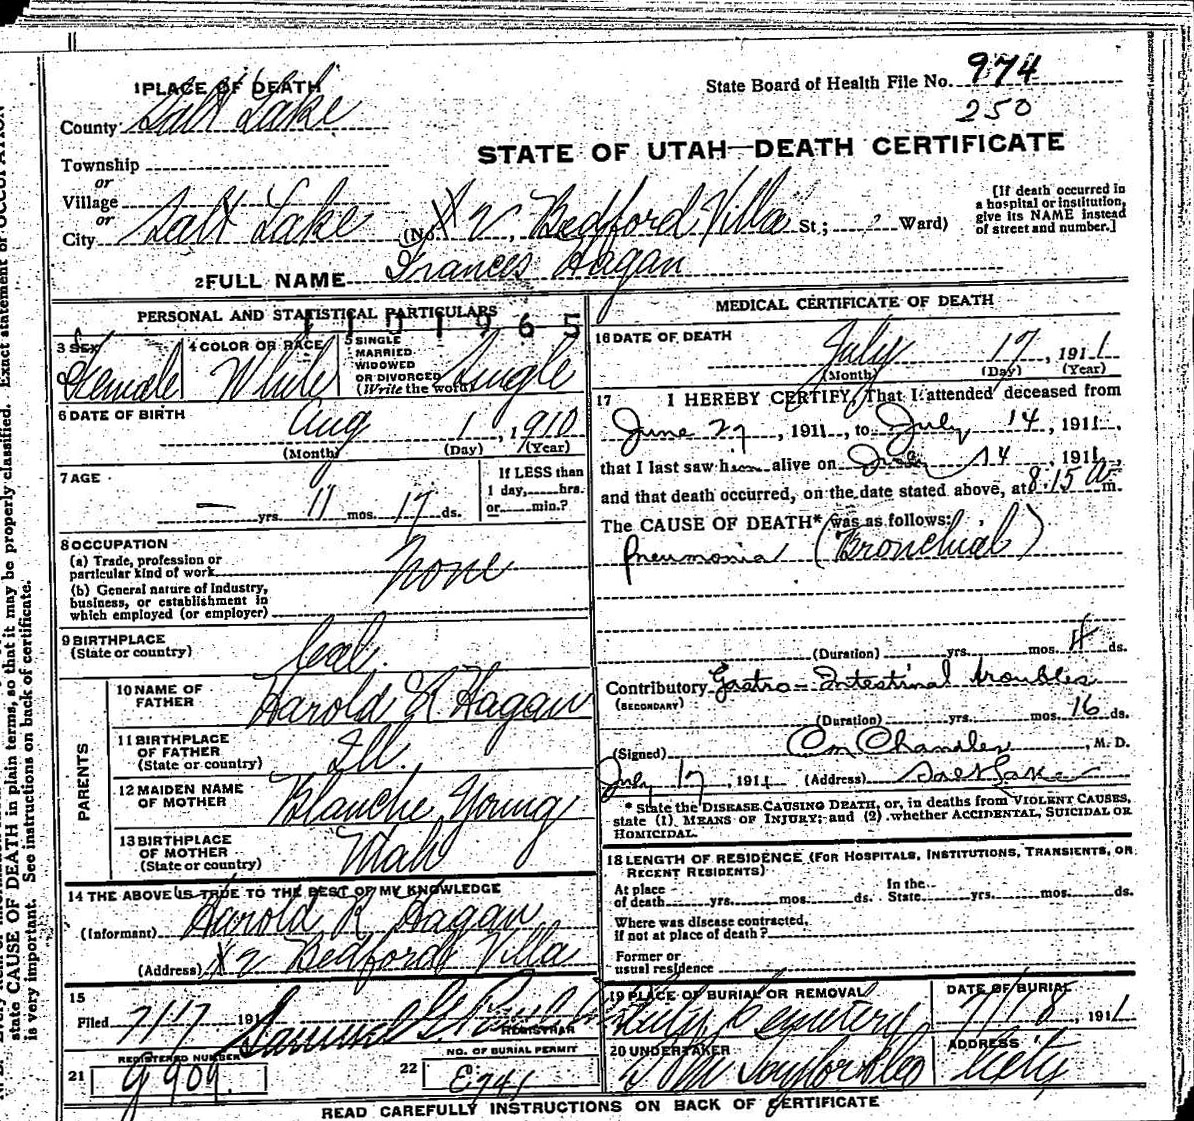 1 PLACE OF DEATH
State Board of Health File No. 974
250
County Salt Lake
STATE OF UTAH—DEATH CERTIFICATE
Township
or
Village
or
City Salt Lake (No. X 2, Bedford Villa St.; Ward)
[If death occurred in
a hospital or institution,
give its NAME instead
of street and number.]
2 FULL NAME Frances Hagan
PERSONAL AND STATISTICAL PARTICULARS
1101965
3 SEX
Female
4 COLOR OR RACE
White
5 SINGLE
MARRIED
WIDOWED
OR DIVORCED
(Write the word)
Single
6 DATE OF BIRTH
Aug 1, 1910
(Month) (Day) (Year)
7 AGE
— yrs. 11 mos. 17 ds.
If LESS than
1 day, hrs.
or min.?
8 OCCUPATION
(a) Trade, profession or
particular kind of work None
(b) General nature of industry,
business, or establishment in
which employed (or employer)
9 BIRTHPLACE
(State or country) Cal.
PARENTS
10 NAME OF
FATHER Harold R Hagan
11 BIRTHPLACE
OF FATHER
(State or country) Ill.
12 MAIDEN NAME
OF MOTHER Blanche Young
13 BIRTHPLACE
OF MOTHER
(State or country) Utah
14 THE ABOVE IS TRUE TO THE BEST OF MY KNOWLEDGE
(Informant) Harold R Hagan
(Address) X 2 Bedford Villa
15
Filed 7/17 191 Samuel G.
REGISTRAR
REGISTERED NUMBER
21 9909
NO. OF BURIAL PERMIT
22 E741
MEDICAL CERTIFICATE OF DEATH
16 DATE OF DEATH
July 17, 1911
(Month) (Day) (Year)
17 I HEREBY CERTIFY, That I attended deceased from
June 27, 1911, to July 14, 1911,
that I last saw him alive on July 14 1911,
and that death occurred, on the date stated above, at 8:15 A m.
The CAUSE OF DEATH* was as follows:
Pneumonia (Bronchial)
(Duration) yrs. mos. 4 ds.
Contributory Gastro-Intestinal troubles
(SECONDARY)
(Duration) yrs. mos. 16 ds.
(Signed) Chandler, M. D.
July 17, 1911 (Address) Salt Lake
* State the DISEASE CAUSING DEATH, or, in deaths from VIOLENT CAUSES,
state (1) MEANS OF INJURY; and (2) whether ACCIDENTAL, SUICIDAL OR
HOMICIDAL.
18 LENGTH OF RESIDENCE (FOR HOSPITALS, INSTITUTIONS, TRANSIENTS, OR
RECENT RESIDENTS)
At place
of death yrs. mos. ds.
In the
State yrs. mos. ds.
Where was disease contracted,
If not at place of death?
Former or
usual residence
19 PLACE OF BURIAL OR REMOVAL
City Cemetery
DATE OF BURIAL
7/18, 1911
20 UNDERTAKER
Taylor & Co
ADDRESS
City
READ CAREFULLY INSTRUCTIONS ON BACK OF CERTIFICATE
state CAUSE OF DEATH in plain terms, so that it may be properly classified. Exact statement of OCCUPATION
is very important. See instructions on back of certificate.